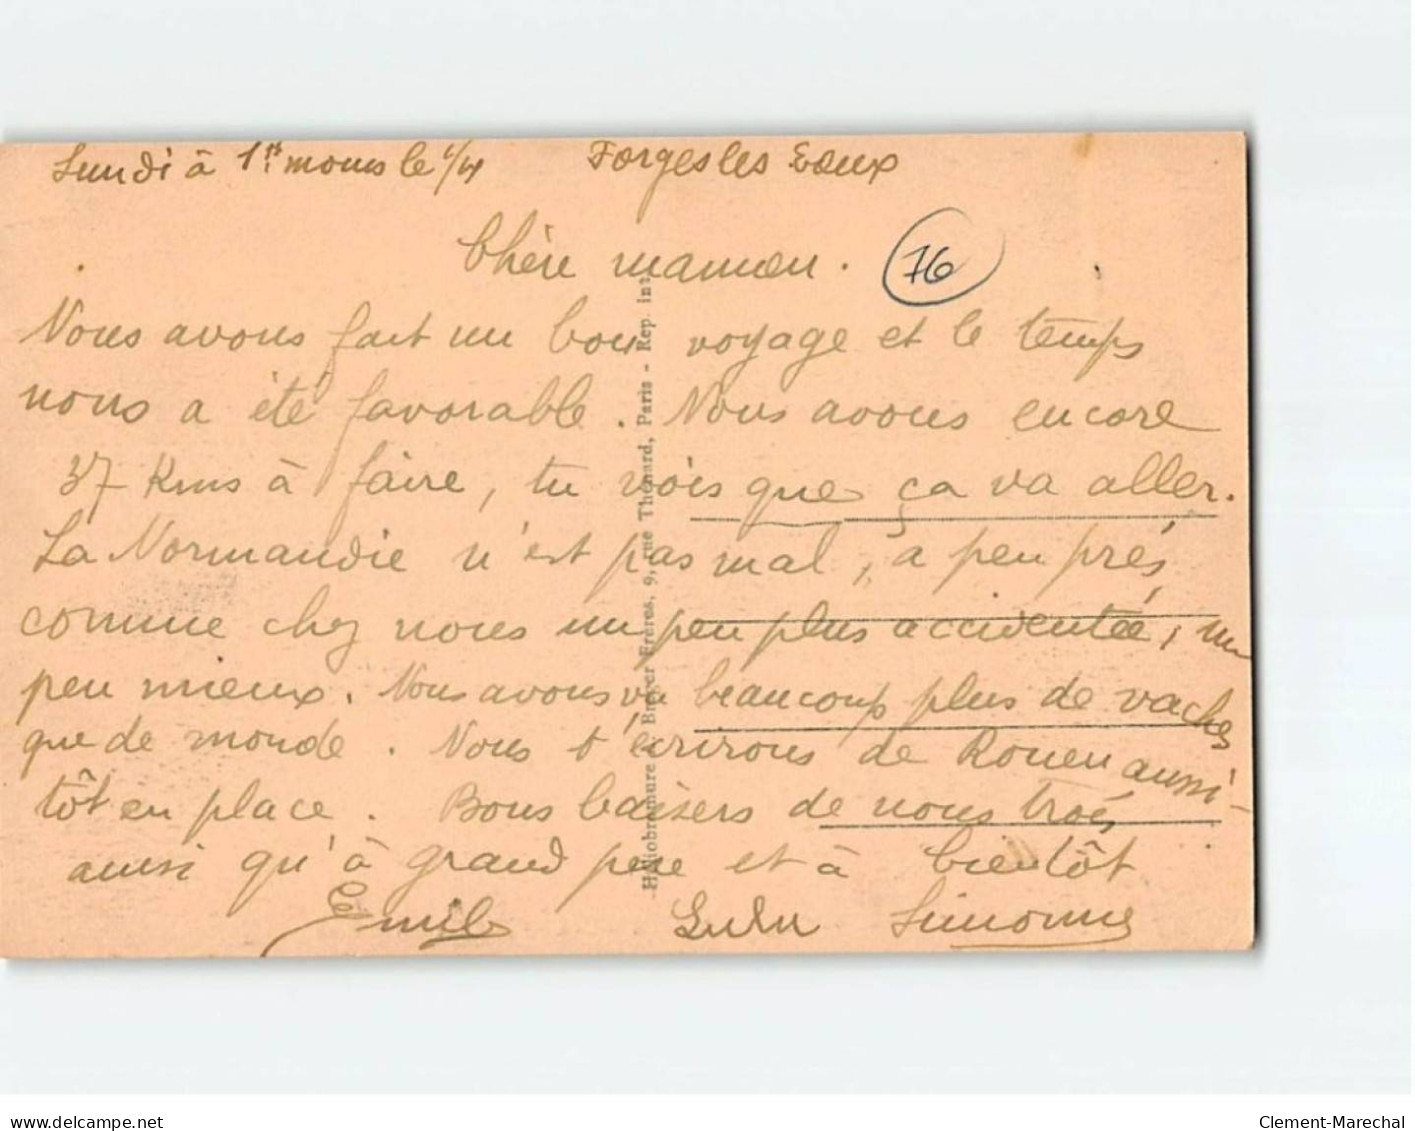 Lundi à 1h moins le 1/4 Forges les Eaux
76
Chère maman.
Nous avons fait un bon voyage et le temps
nous a été favorable. Nous avons encore
37 Kms à faire, tu vois que ça va aller.
La Normandie n'est pas mal, à peu près
comme chez nous un peu plus accidentée, un
peu mieux. Nous avons vu beaucoup plus de vaches
que de monde. Nous t'écrirons de Rouen aussi-
tôt en place. Bons baisers de nous trois
ainsi qu'à grand père et à bientôt
Emile Lulu Simonne
Héliobromure Breger Frères, 9, rue Thénard, Paris - Rep. int.
delcampe.net
Clement-Marechal